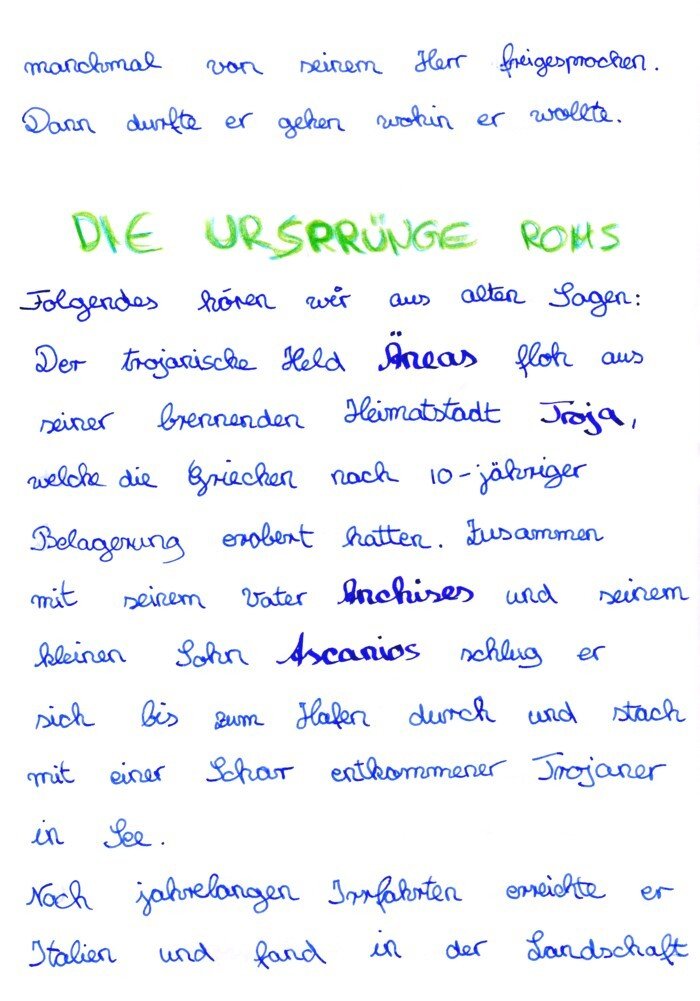 manchmal von seinem Herr freigesprochen.
Dann durfte er gehen wohin er wollte.
DIE URSPRÜNGE ROMS
Folgendes hören wir aus alten Sagen:
Der trojanische Held Äneas floh aus
seiner brennenden Heimatstadt Troja,
welche die Griechen nach 10-jähriger
Belagerung erobert hatten. Zusammen
mit seinem Vater Anchises und seinem
kleinen Sohn Ascanios schlug er
sich bis zum Hafen durch und stach
mit einer Schar entkommener Trojaner
in See.
Nach jahrelangen Irrfahrten erreichte er
Italien und fand in der Landschaft